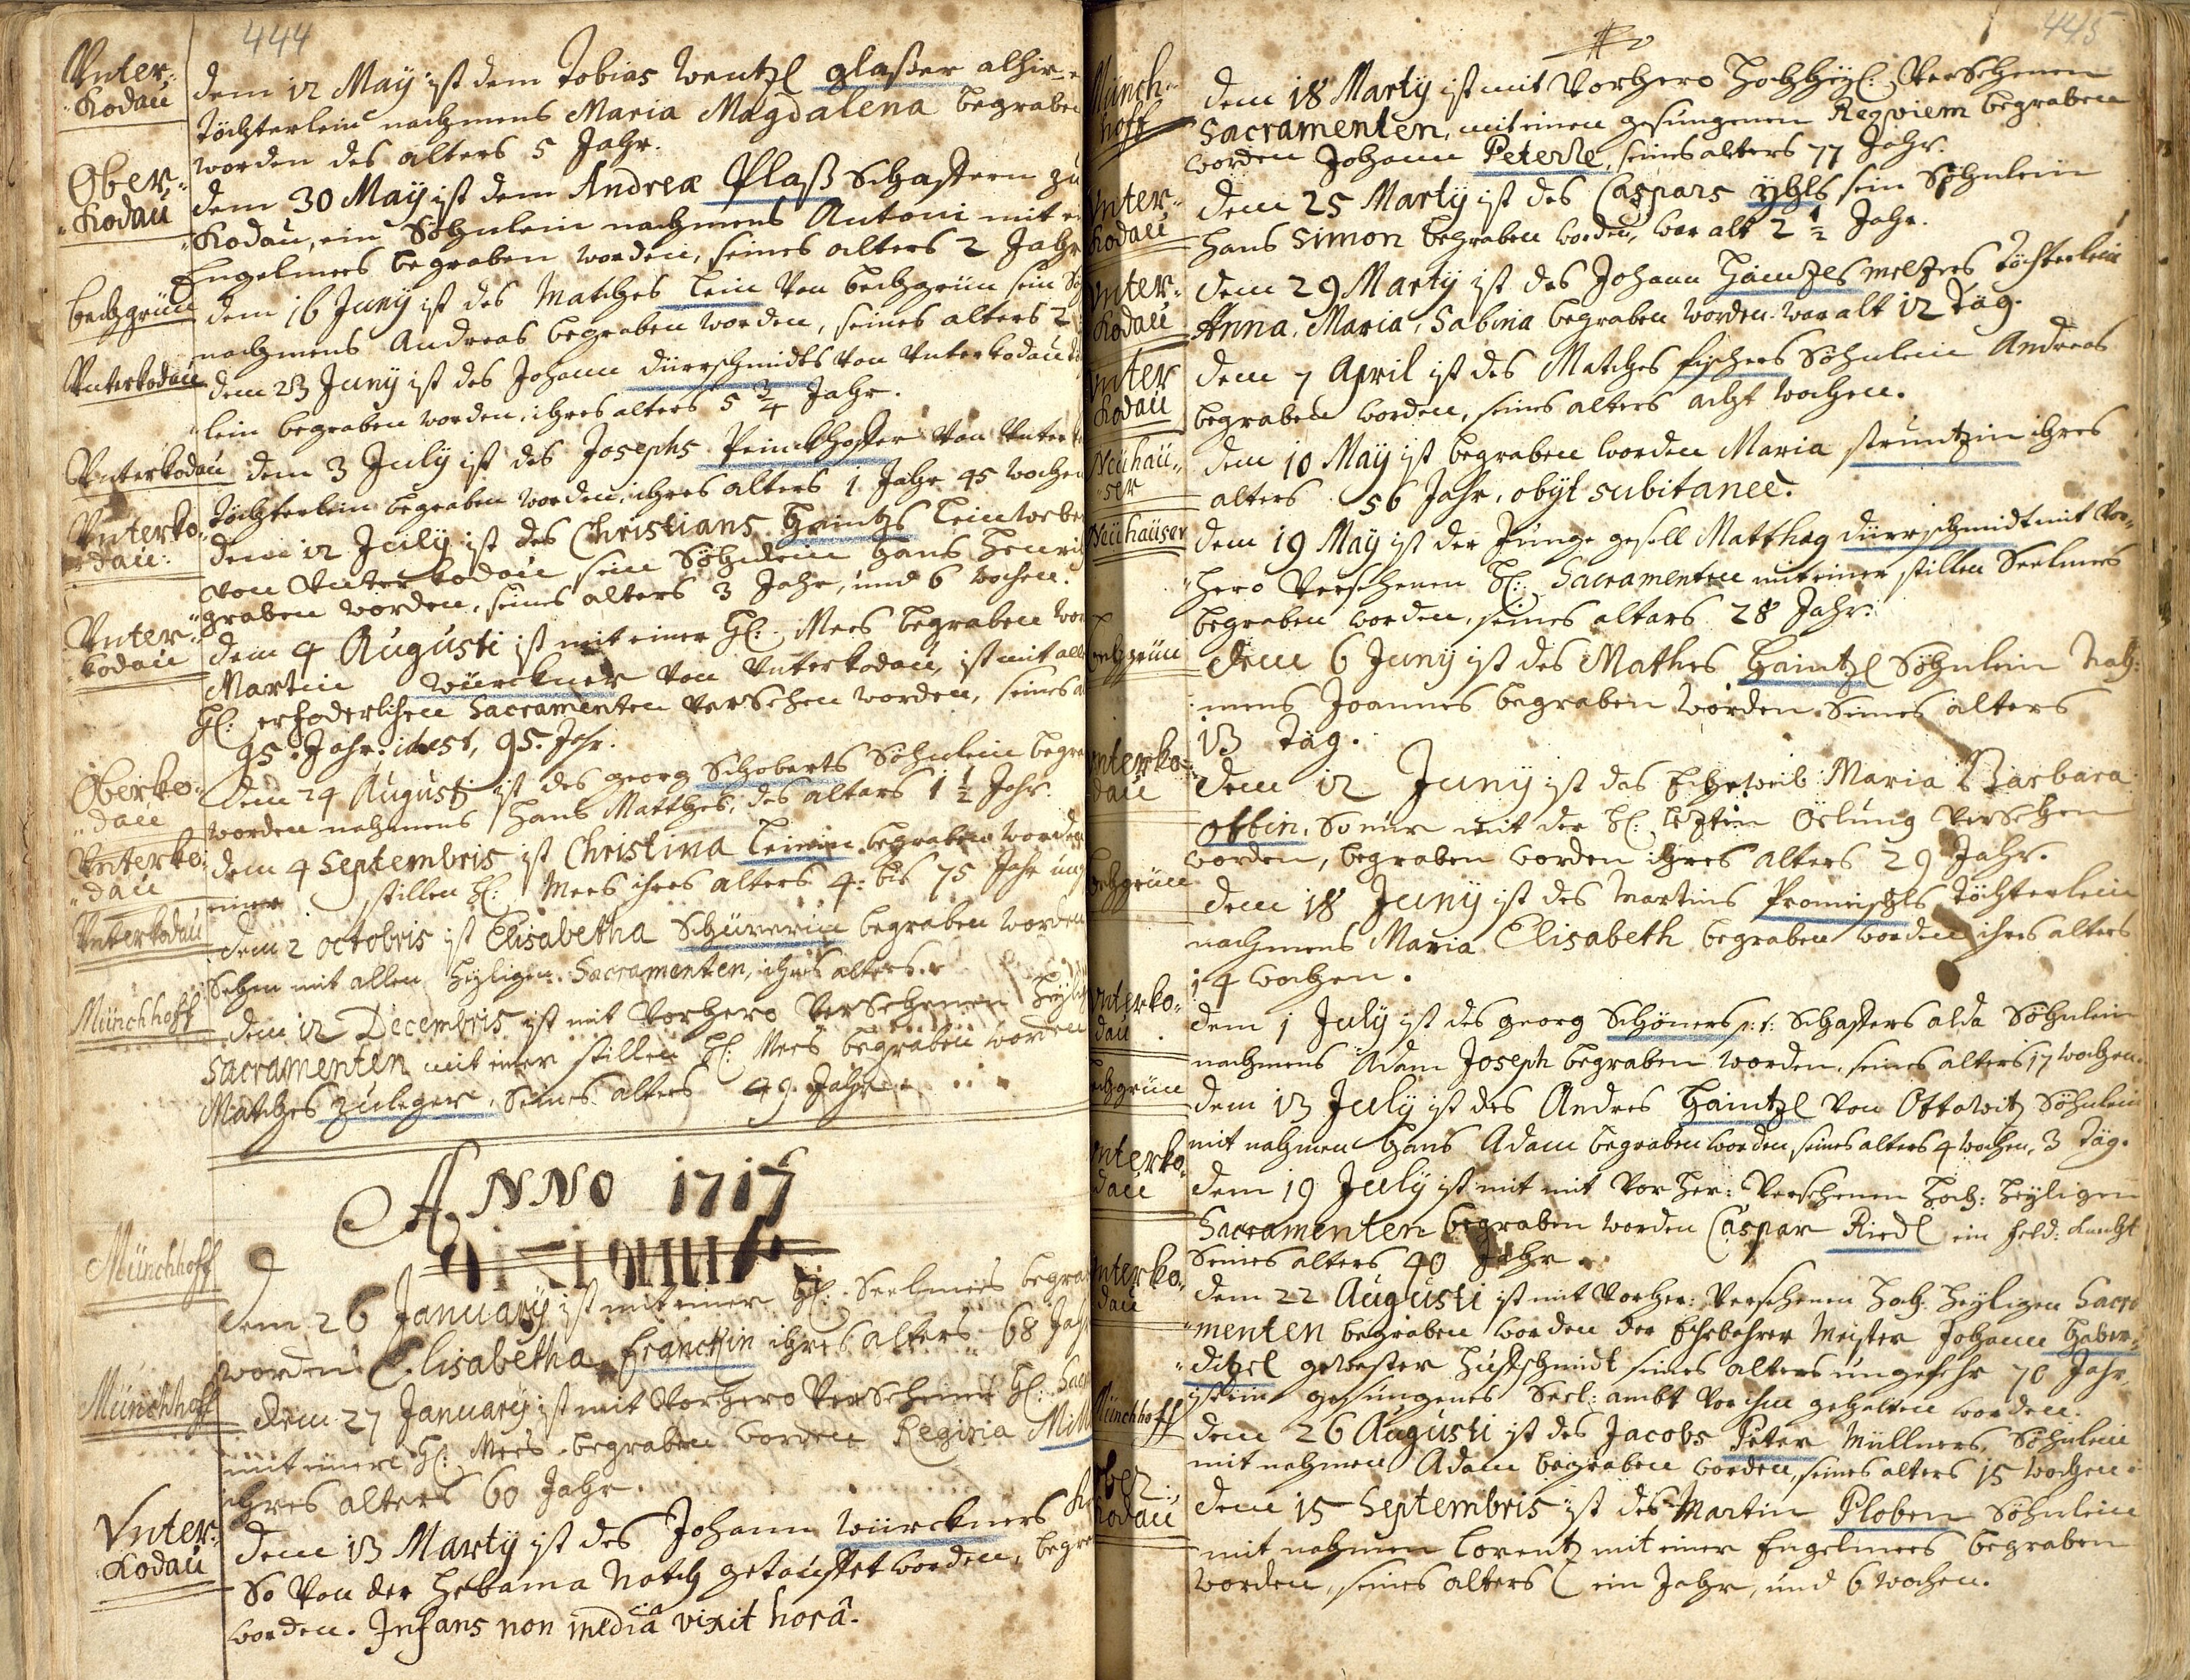 444
Vnter-
Kodau
dem 12 Maÿ ist dem Tobias Wentzl glaßer alhir
töchterlein nahmens Maria Magdalena begraben
worden des alters 5 Jahr.
Ober-
Kodau
dem 30 Maÿ ist dem Andreæ Plaß Schaffern zu
Kodau, ein Söhnlein nahmens Antoni mit
Engelmees begraben worden, seines alters 2 Jahr
bechgrün
dem 16 Junÿ ist des Mathes Lein von bechgrün sein
nahmens Andreas begraben worden, seines alters 2
Vnterkodau
dem 23 Junÿ ist des Johann dürrschmidts von Vnterkodau
lein begraben worden, ihres alters 5 3/4 Jahr.
Vnterkodau
dem 3 Julÿ ist des Josephs Peinckhoffer von Vnter
töchterlein begraben worden, ihres alters 1 Jahr 45 wochen
Vnterko-
dau:
dem 12 Julÿ ist des Christians Haintzs Leinwebe
von Vnterkodau sein Söhnlein Hans Henri
graben worden, seines alters 3 Jahr, und 6 wochen.
Vnter-
kodau
dem 4 Augusti ist mit einer Hl: Mees begraben wor
Martin Würckner von Vnterkodau, ist mit alle
Hl: erfoderlichen Sacramenten versehen worden, seines
95 Jahr. idest, 95. Jahr.
Oberko-
dau
dem 24 Augusti ist des georg Schoberts Söhnlein begra
worden nahmens Hans Matthes, des alters 1 1/2 Jahr.
Vnterko-
dau
dem 4 Septembris ist Christina Leinin begraben worden
einer stillen Hl: Mees ihres alters 4: bis 75 Jahr ung
Vnterkodau
dem 2 octobris ist Elisabetha Schürerin begraben worden
sehen mit allen heyligen Sacramenten, ihres alters
Münchhoff
dem 12 Decembris ist mit vorhero versehenen heylig
Sacramenten mit einer stillen Hl: Mees begraben worden
Mathes Zuleger, seines alters 49. Jahr.
ANNO 1717
Münchhoff
dem 26 Januarÿ ist mit einer Hl: Seelmees begra
worden Elisabetha Franckin ihres alters 68 Jahr
Münchhoff
dem 27 Januarÿ ist mit vorhero versehene Hl: Sac
mit einer Hl: Mees begraben worden Regina
ihres alters 60 Jahr.
Vnter-
Kodau
dem 13 Martÿ ist des Johann Würckners
so von der Hebama Noth getauffet worden, begra
worden. Infans non mediâ vixit horâ.
445
Münch-
hoff
dem 18 Martÿ ist mit vorhero hochheyl: versehenen
Sacramenten, mit einen gesungenen Reqviem begraben
worden Johann Peterle, seines alters 77 Jahr.
Vnter-
Kodau
dem 25 Martÿ ist des Caspars ÿhls sein Söhnlein
Hans Simon begraben worden, war alt 2 1/2 Jahr.
Vnter-
Kodau
dem 29 Martÿ ist des Johann Haintzls melzers töchterlein
Anna, Maria, Sabina begraben worden. war alt 12 täg.
Vnter
Kodau
dem 7 April ist des Mathes fischers Söhnlein Andreas
begraben worden, seines alters acht wochen.
Neühaü-
ser
dem 10 Maÿ ist begraben worden Maria Struntzin ihres
alters 56 Jahr, obÿt subitaneè.
Neühaüser
dem 19 Maÿ ist der Junge gesell Matthæÿ dürrschmidt mit vor-
hero versehenen Hl: Sacramenten mit einer stillen Seelmees
begraben worden, seines alters 28 Jahr.
bechgrün
dem 6 Junÿ ist des Mathes Haintzl Söhnlein nah-
mens Joannes begraben worden seines alters
13 täg.
Vnterko-
dau
dem 12 Junÿ ist das Eheweib Maria Barbara
ottin, so nur mit der Hl: lezten Öelung versehen
worden, begraben worden ihres alters 29 Jahr.
bechgrün
dem 18 Junÿ ist des Martins Promischls töchterlein
nahmens Maria Elisabeth begraben worden ihres alters
14 wochen.
Vnterko-
dau
dem 1 Julÿ ist des georg Schöners Schaffers alda Söhnlein
nahmens Adam Joseph begraben worden, seines alters 17 wochen.
bechgrün
dem 13 Julÿ ist des Andres Haintzl von Ottowitz Söhnlein
mit nahmen Hans Adam begraben worden, seines alters 4 wochen, 3 täg.
Vnterko-
dau
dem 19 Julÿ ist mit mit vorher: versehenen hoch: heyligen
Sacramenten begraben worden Caspar Riedl ein feld: knecht
seines alters 40 Jahr.
Vnterko-
dau
dem 22 Augusti ist mit vorher: versehenen hoch heyligen Sacra
menten begraben worden der Ehrbahrer Meister Johann Haber-
ditzel gewester Hufschmidt seines alters ungefehr 70 Jahr,
ist ein gesungenes Seel: ambt vor ihm gehalten worden.
Münchhoff
dem 26 Augusti ist des Jacobs Peter Müllners Söhnlein
mit nahmen Adam begraben worden, seines alters 15 wochen
Ober-
Kodau
dem 15 Septembris ist des Martin Ploben Söhnlein
mit nahmen Lorentz mit einer Engelmees begraben
worden, seines alters ein Jahr, und 6 wochen.